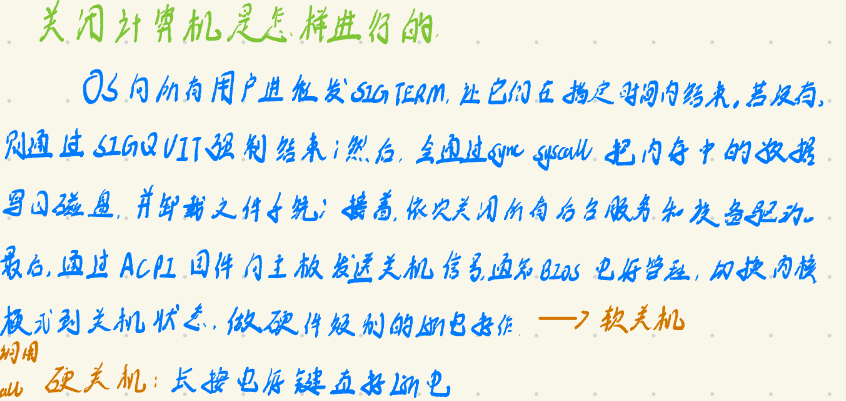 关闭计算机是怎样进行的
OS向所有用户进程发SIGTERM,让它们在指定时间内结束。若没有,
则通过SIGQUIT强制结束;然后,会通过sync syscall 把内存中的数据
写回磁盘,并卸载文件系统;接着,依次关闭所有后台服务和设备驱动。
最后,通过ACPI固件向主板发送关机信号,通知BIOS电源管理,切换内核
模式到关机状态,做硬件级别的断电操作 → 软关机
调用
all 硬关机:长按电源键直接断电